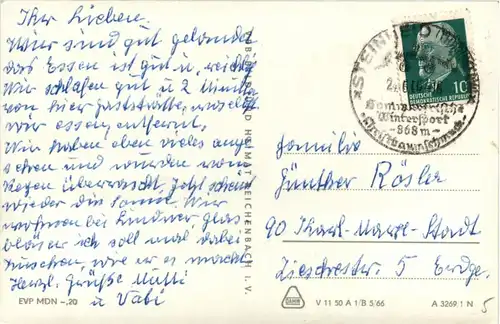 Ihr Lieben.
Wir sind gut gelandet
das Essen ist gut u. reichl.
Wir schlafen gut u 2 Minuten
von hier Gaststätte, wo
wir essen, entfernt.
Wir haben eben vieles ange
sehen und wurden vom
Regen überrascht. Jetzt scheint
wieder die Sonne. Wir
wohnen bei Lindner, glas
bläser ich soll mal dabei
zuschen, wie er es macht
Herzl. Grüße Mutti
u Vati
EVP MDN -,20
BILD HEIMAT REICHENBACH i. V.
10
DEUTSCHE
DEMOKRATISCHE REPUBLIK
Wintersport
- 868 m -
Familie
Günther Rösler
90 Karl-Marx-Stadt
5 Erdge.
V 11 50 A 1/B 5/66
A 3269/1 N
5